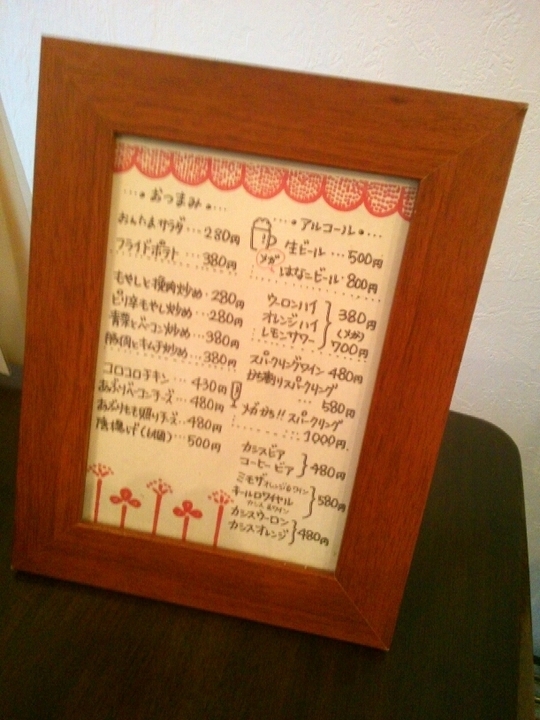 おつまみ
おんたまサラダ…280円
フライドポテト…380円
もやしと挽肉炒め・280円
ピリ辛もやし炒め…280円
青菜とベーコン炒め…380円
豚肉とキムチ炒め…380円
コロコロチキン…430円
あぶりベーコンチーズ…480円
あぶりもも照りチーズ…480円
唐揚げ(6個)…500円
アルコール
生ビール…500円
メガ
はなこビール・800円
ウーロンハイ
オレンジハイ
レモンサワー
380円
(メガ)
700円
スパークリングワイン 480円
かち割りスパークリング
…580円
メガかち!!スパークリング
…1000円
カシスビア
コーヒービア
480円
ミモザ オレンジ&ワイン
キールロワイヤル
カシス&ワイン
580円
カシスウーロン
カシスオレンジ
480円